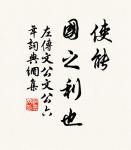 使能
國之利也
左傳文公文公六
年詞典網集